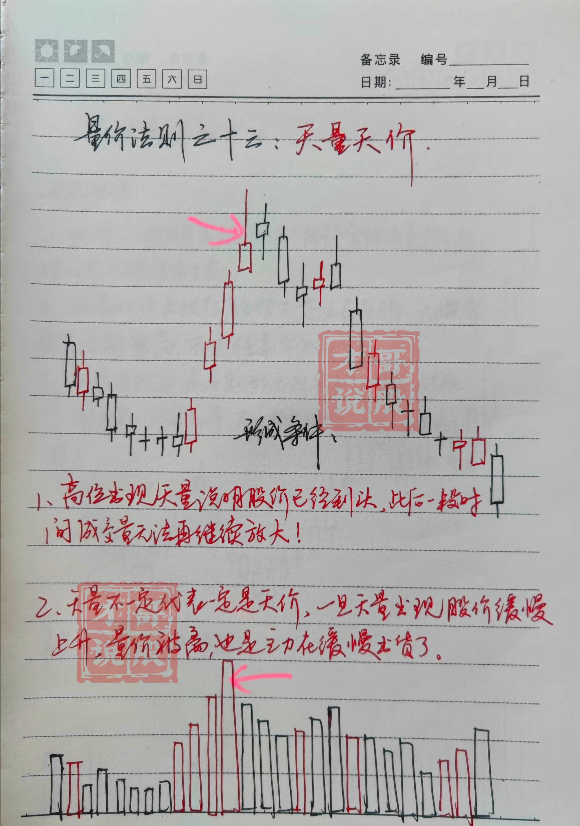 备忘录 编号
一 二 三 四 五 六 日
日期: 年 月 日
量价法则之十三:天量天价.
形成条件:
1、高位出现天量说明股价已经到头,此后一段时
间成交量无法再继续放大!
2、天量不一定代表一定是天价,一旦天量出现股价缓慢
上升,量价 高,也是主力在缓慢出货了。